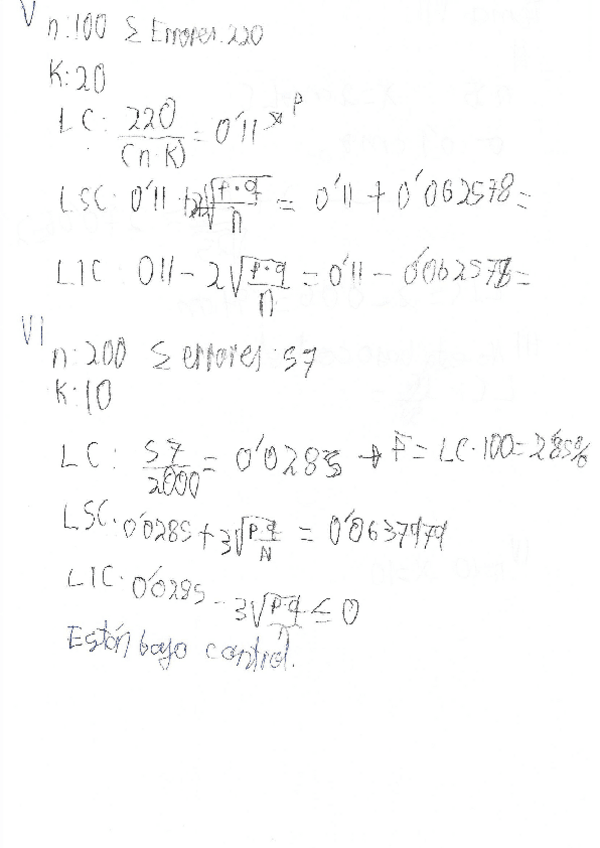 V n:100 Σ Errores:220
K:20
LC: 220/(n·K) = 0'11 → P
LSC: 0'11 + 2√(P·q/n) = 0'11 + 0'062578=
LIC: 011 - 2√(P·q/n) = 0'11 - 0'062578=
VI n:200 Σ errores 57
K:10
LC: 57/2000 = 0'0285 → P̄ = LC·100=2'85%
LSC: 0'0285 + 3√(P·q/N) = 0'0637979
LIC: 0'0285 - 3√(P·q/n) ≤ 0
Están bajo control.